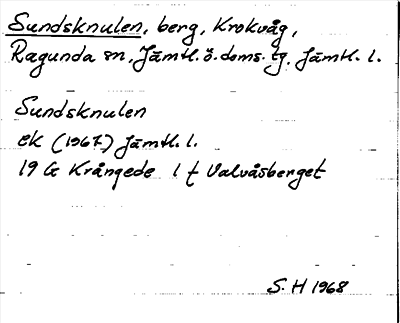 Sundsknulen, berg, Krokvåg,
Ragunda sn, Jämtl. ö. doms. tg, Jämtl. l.
Sundsknulen
ek (1967) Jämtl. l.
19 G Krångede 1 f Valvåsberget
S. H 1968